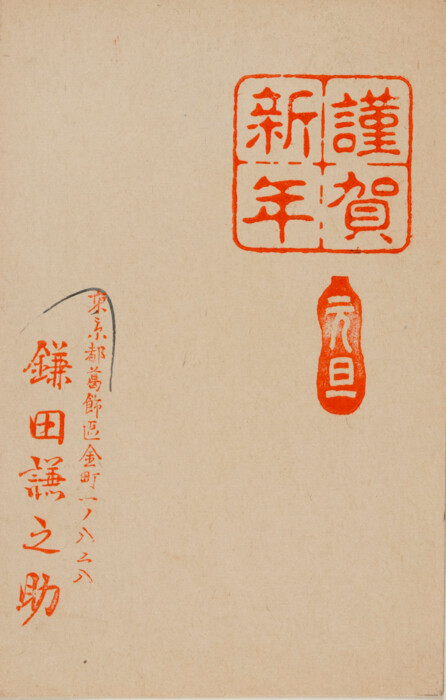 謹賀
新年
元旦
東京都葛飾區金町一ノ八二八
鎌田謙之助